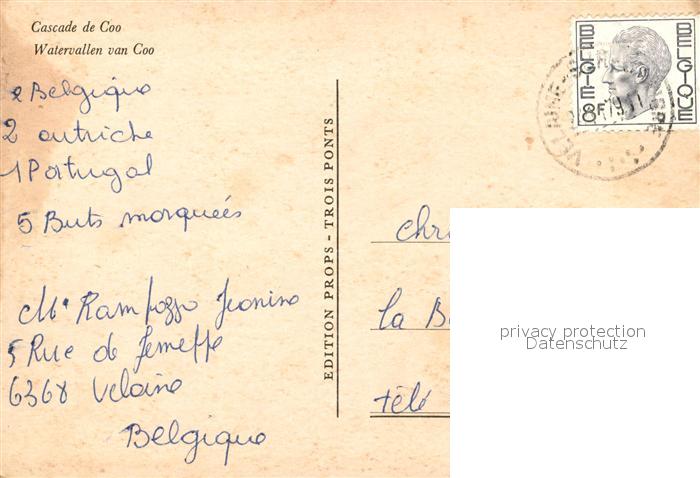 Cascade de Coo
Watervallen van Coo
BELGIQUE
BELGIË
8F
2 Belgique
2 autriche
1 Portugal
5 Buts marqueés
Me Rampozzo Jeanine
5 Rue de Jemeppe
6368 Velaine
Belgique
EDITION PROPS - TROIS PONTS
Chri
la B
télé
privacy protection
Datenschutz